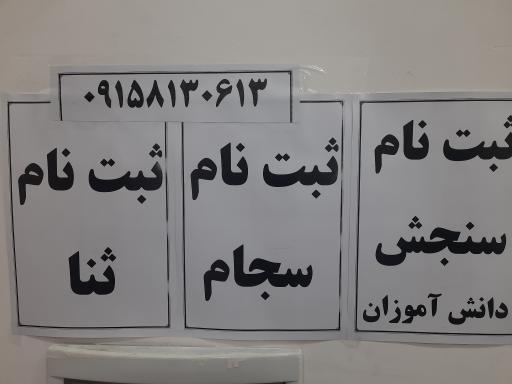 ۰۹۱۵۸۱۳۰۶۱۳
ثبت نام
سنجش
دانش آموزان
ثبت نام
سجام
ثبت نام
ثنا